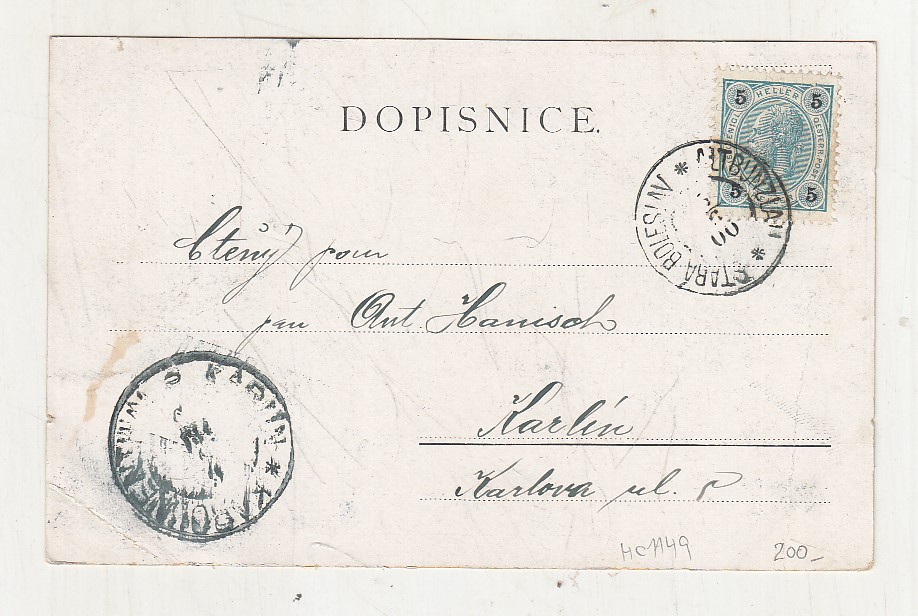 DOPISNICE.
5 HELLER 5
5 5
ALTBUNZLAU * STARÁ BOLESLAV *
00
Ctěný pan
pan Ant. Hanisch
KARLÍN *
Karlín
Karlova ul.
HC1149 200_